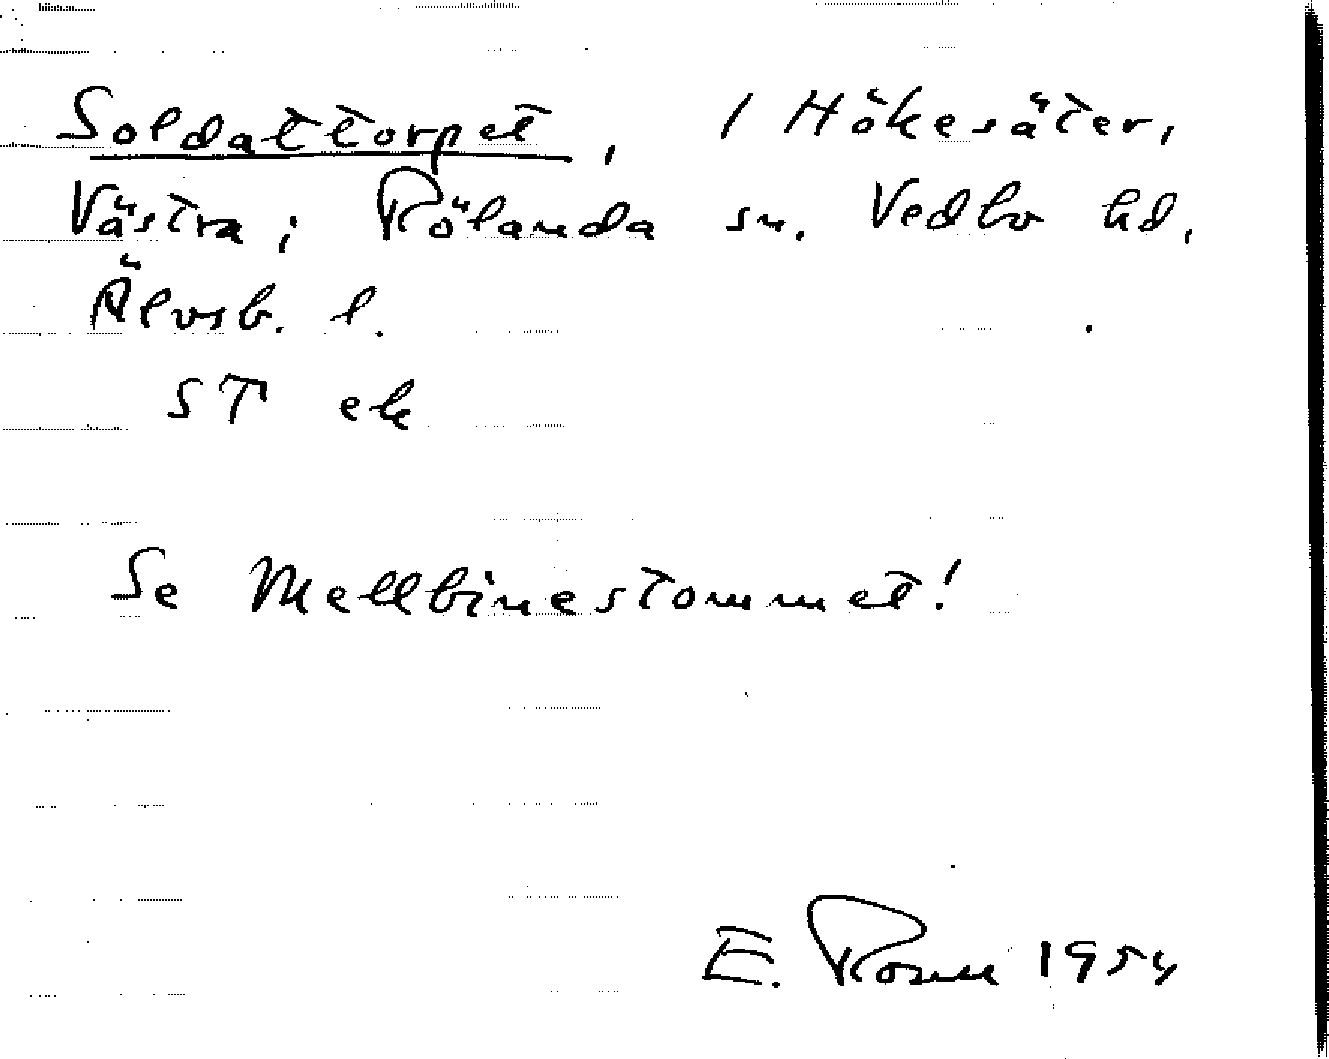 Soldattorpet, / Hökesäter,
Västra; Rölanda sn. Vedbo hd.
Älvsb. l.
ST ek
Se Mellbinestommet!
E. Rosell 1954